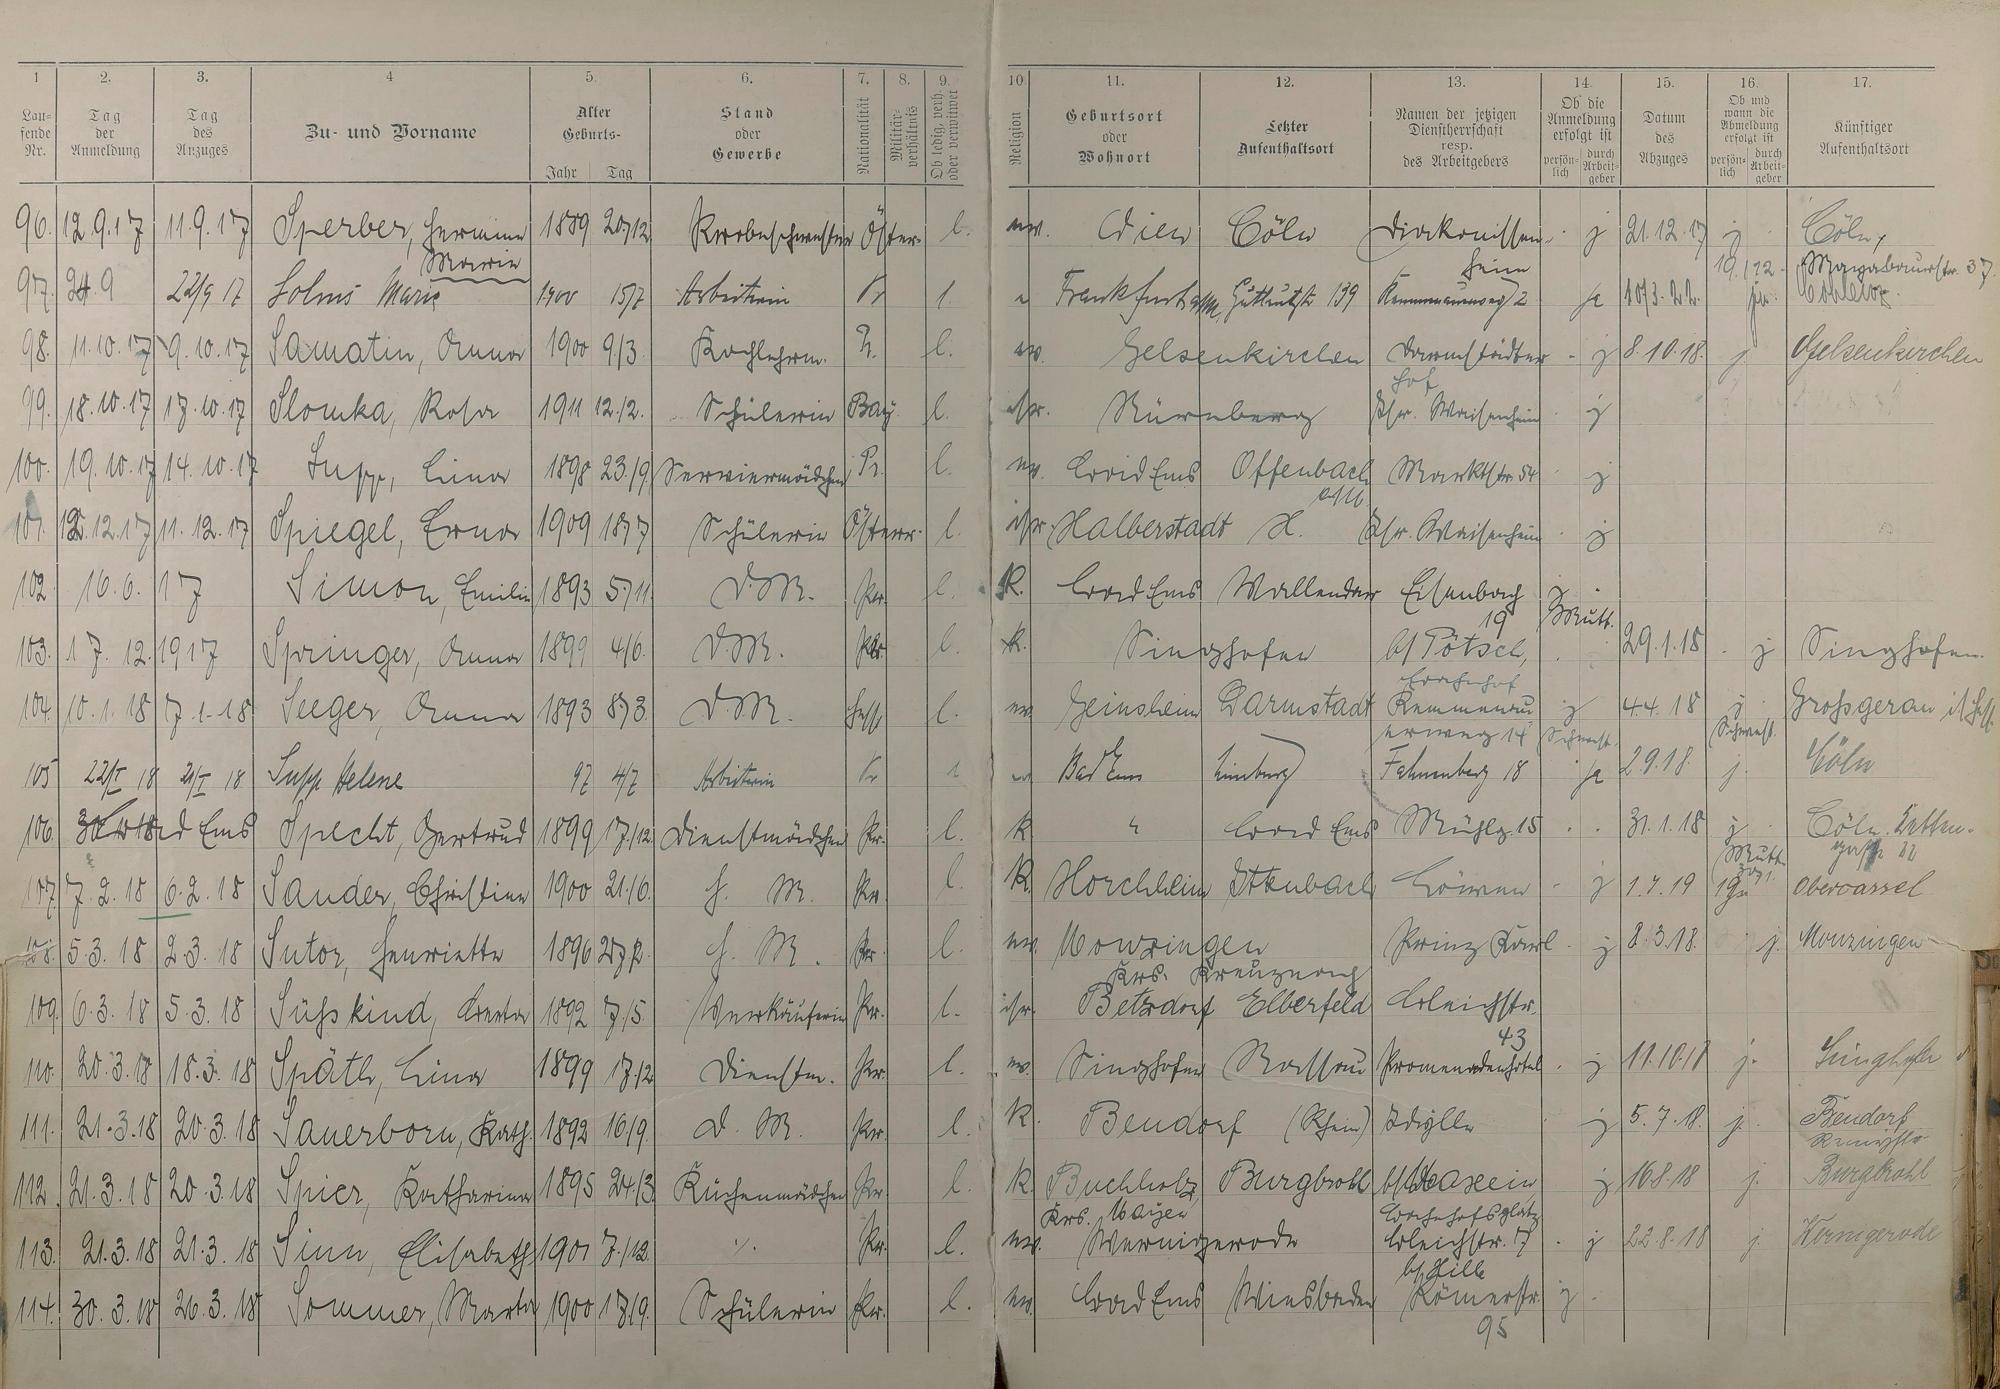 1 2. 3. 4 5. 6. 7. 8. 9. 10 11. 12. 13. 14. 15. 16. 17.
Lau-
fende
Nr.
Tag
der
Anmeldung
Tag
des
Anzuges
Zu- und Vorname
Alter
Geburts-
Jahr Tag
Stand
oder
Gewerbe
Nationalität
Militär-
verhältnis
Ob ledig, verh.
oder verwitwet
Religion
Geburtsort
oder
Wohnort
Letzter
Aufenthaltsort
Namen der jetzigen
Dienstherrschaft
resp.
des Arbeitgebers
Ob die
Anmeldung
erfolgt ist
persön-
lich
durch
Arbeit-
geber
Datum
des
Abzuges
Ob und
wann die
Abmeldung
erfolgt ist
persön-
lich
durch
Arbeit-
geber
Künftiger
Aufenthaltsort
96. 12.9.17 11.9.17 Sperber, Hermine 1889 20/12 Öster. l. ev. Wien Cöln Diakonissen- j 21.12.17 j Cöln,
Maria heim 19/12 37
97. 24.9 22/9 17 Solms Marie 1900 15/7 Arbeiterin Pr l. Frankfurt a/M, 139 2 ja 10/3.22. Coblenz.
98. 11.10.17 9.10.17 Samatin, Anna 1900 9/3 Kochlehrm. Pr. l. ev. Gelsenkirchen Darmstädter - j 8.10.18. j Gelsenkirchen
hof
99. 18.10.17 17.10.17 Slomka, Rosa 1911 12.12. Schülerin Bay. l. isr. Nürnberg Isr. Waisenheim j
100. 19.10.17 14.10.17 Supp, Lina 1898 23./9 Serviermädchen Pr. l. ev. Bad Ems Offenbach Marktstr. 54 j
a/M
101. 12.12.17 11.12.17 Spiegel, Erna 1909 18/7 Schülerin Österr. l. isr. Halberstadt H. Isr. Waisenheim j
102. 16.6. 17 Simon, Emilie 1893 5/11 D.M. Pr. l. K. Bad Ems Vallendar Eisenbach
19 Mutt.
103. 17.12.1917 Springer, Anna 1899 4/6. D.M. Pr. l. k. Singhofen b/ Pötsch, 29.1.18 j Singhofen.
Bahnhof
104. 10.1.18 7.1.18 Seeger, Anna 1893 8/3 D.M. Hess l. ev. Geinsheim Darmstadt Kemmenau j 4.4.18 j Grossgerau i/Hess.
erweg 14 Schwest. Schwest.
105 22/I 18 21/I 18 Supp Helene 97 4/7 Arbeiterin Pr l Bad Ems Limburg Fahnenberg 18 ja 2.9.18 j. Cöln
106. Bad Ems Specht, Gertrud 1899 17/12 Dienstmädchen Pr. l. k " Bad Ems Mühlg. 15 31.1.18 j Cöln.
Mutt. 22
107. 7.2.18 6.2.18 Sander, Christine 1900 21./6. H. M. Pr. l. K. Horchheim Löwen j 1.7.19 Obercassel
108. 5.3.18 2.3.18 Sutor, Henriette 1896 H. M. Pr. l. ev. Monzingen Prinz Karl j 8.3.18. j. Monzingen
Krs. Kreuznach
109. 6.3.18 5.3.18 Süsskind, Berta 1892 7/5 Verkäuferin Pr. l. isr. Betzdorf Elberfeld Bleichstr.
43
110. 20.3.18 18.3.18 Späth, Lina 1899 17/12 Dienstm. Pr. l. ev. Singhofen Nassau Promenadenhotel j 11.10.18 j. Singhofen
111. 21.3.18 20.3.18 Sauerborn, Kath. 1892 16/9. D. M. Pr. l. K. Bendorf (Rhein) Idylle j 5.7.18. j. Bendorf
112. 21.3.18 20.3.18 Spier, Katharina 1895 24/3 Küchenmädchen Pr. l. K. Buchholz Burgbrohl j 16.8.18 j. Burgbrohl
Krs. Mayen Bahnhofsplatz
113. 21.3.18 21.3.18 Sinn, Elisabeth 1901 7./12. Pr. l. ev. Wernigerode Bleichstr. 17 j 22.8.18 j. Wernigerode
b/ Hille
114. 30.3.18 26.3.18 Sommer, Marta 1900 17/9. Schülerin Pr. l. ev. Bad Ems Wiesbaden Römerstr. j
95